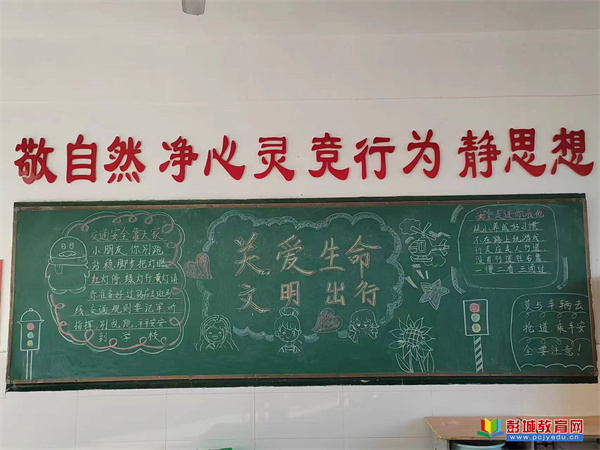 敬自然 净心灵 竞行为 静思想
交通安全靠大家
小朋友 你别跑
站稳脚步把灯瞧
红灯停, 绿灯行, 黄灯请
你准备好过路
线, 交通规则要记牢听
指挥, 别乱跑, 平平安安
到学校
关爱生命
文明出行
安全走进你我他
从小养成好习惯
不在路上玩游戏
行走应走人行道
没有行道往右靠
一慢二看三通过
莫与车辆去
抢道 乘平安
全要注意!
彭城教育网
www.pcjyedu.cn